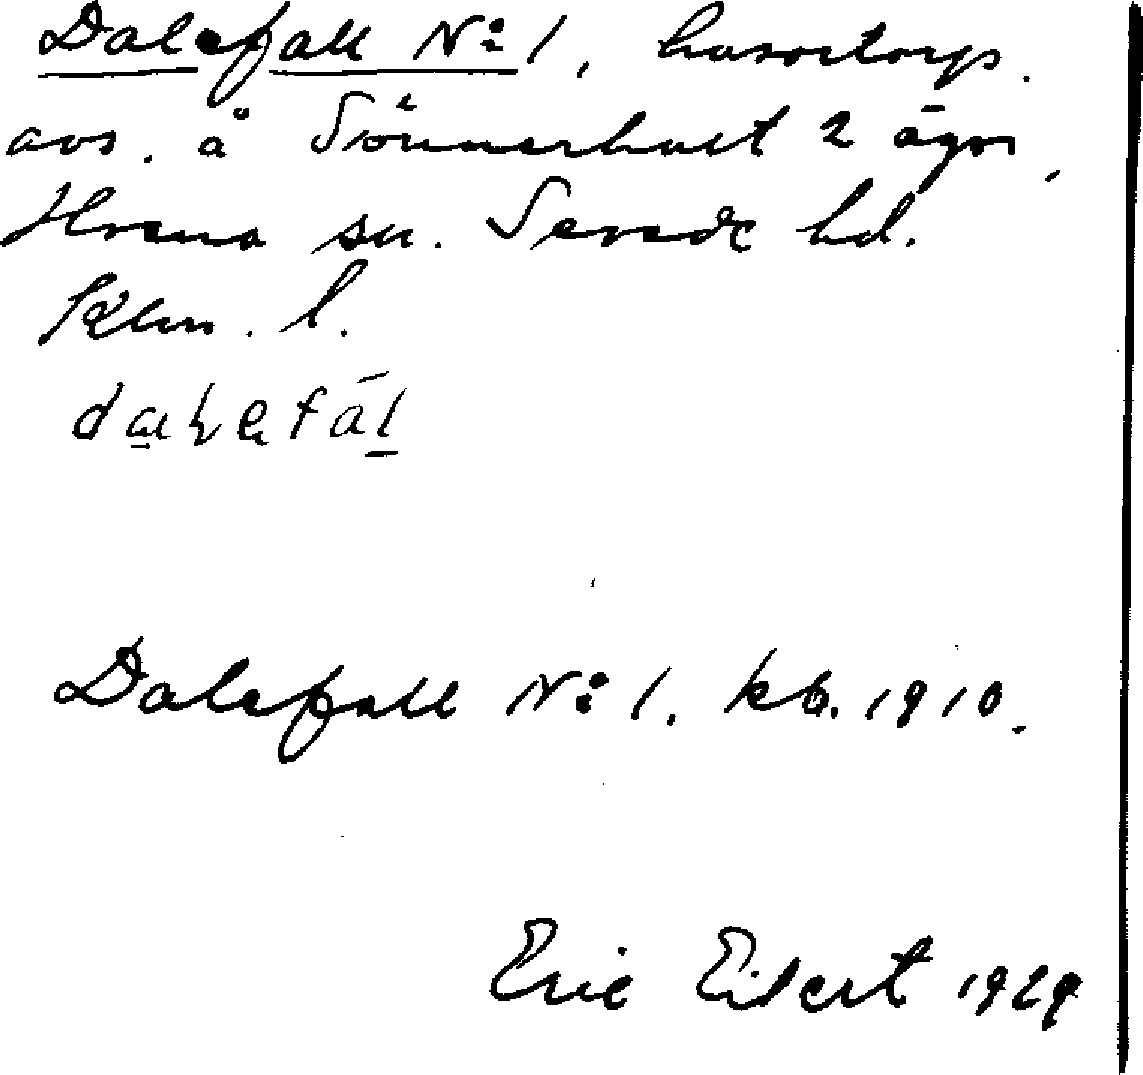 Dalefall No: 1, husartorp.
avs. å Sönnerhult 2 ägor,
Hvena sn. Sevede hd.
Klm. l.
dalefál
Dalefall No: 1. kb. 1910.
Eric Eilert 1929